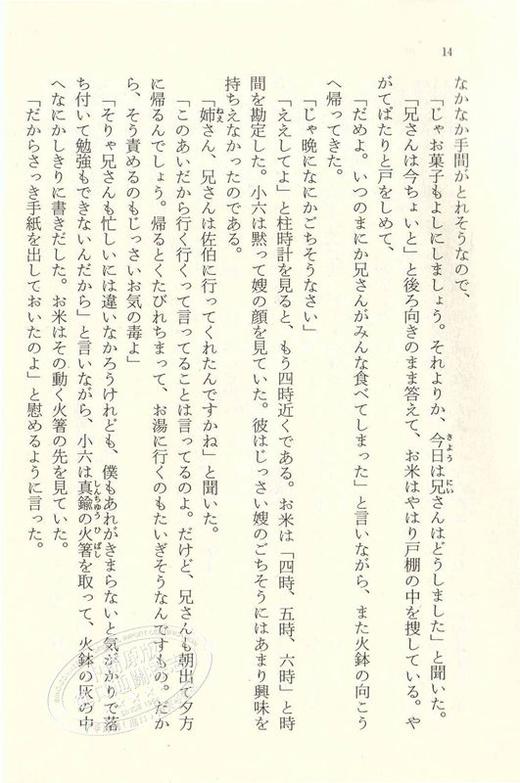 14
なかなか手間がとれそうなので、
「じゃお菓子もよしにしましょう。それよりか、今日は兄さんはどうしました」と聞いた。
「兄さんは今ちょいと」と後ろ向きのまま答えて、お米はやはり戸棚の中を捜している。や
がてぱたりと戸をしめて、
「だめよ。いつのまにか兄さんがみんな食べてしまった」と言いながら、また火鉢の向こう
へ帰ってきた。
「じゃ晩になにかごちそうなさい」
「ええしてよ」と柱時計を見ると、もう四時近くである。お米は「四時、五時、六時」と時
間を勘定した。小六は黙って嫂の顔を見ていた。彼はじっさい嫂のごちそうにはあまり興味を
持ちえなかったのである。
「姉さん、兄さんは佐伯に行ってくれたんですかね」と聞いた。
「このあいだから行く行くって言ってることは言ってるのよ。だけど、兄さんも朝出て夕方
に帰るんでしょう。帰るとくたびれちまって、お湯に行くのもたいぎそうなんですもの。だか
ら、そう責めるのもじっさいお気の毒よ」
「そりゃ兄さんも忙しいには違いなかろうけれども、僕もあれがきまらないと気がかりで落
ち付いて勉強もできないんだから」と言いながら、小六は真鍮の火箸を取って、火鉢の灰の中
へなにかしきりに書きだした。お米はその動く火箸の先を見ていた。
「だからさっき手紙を出しておいたのよ」と慰めるように言った。